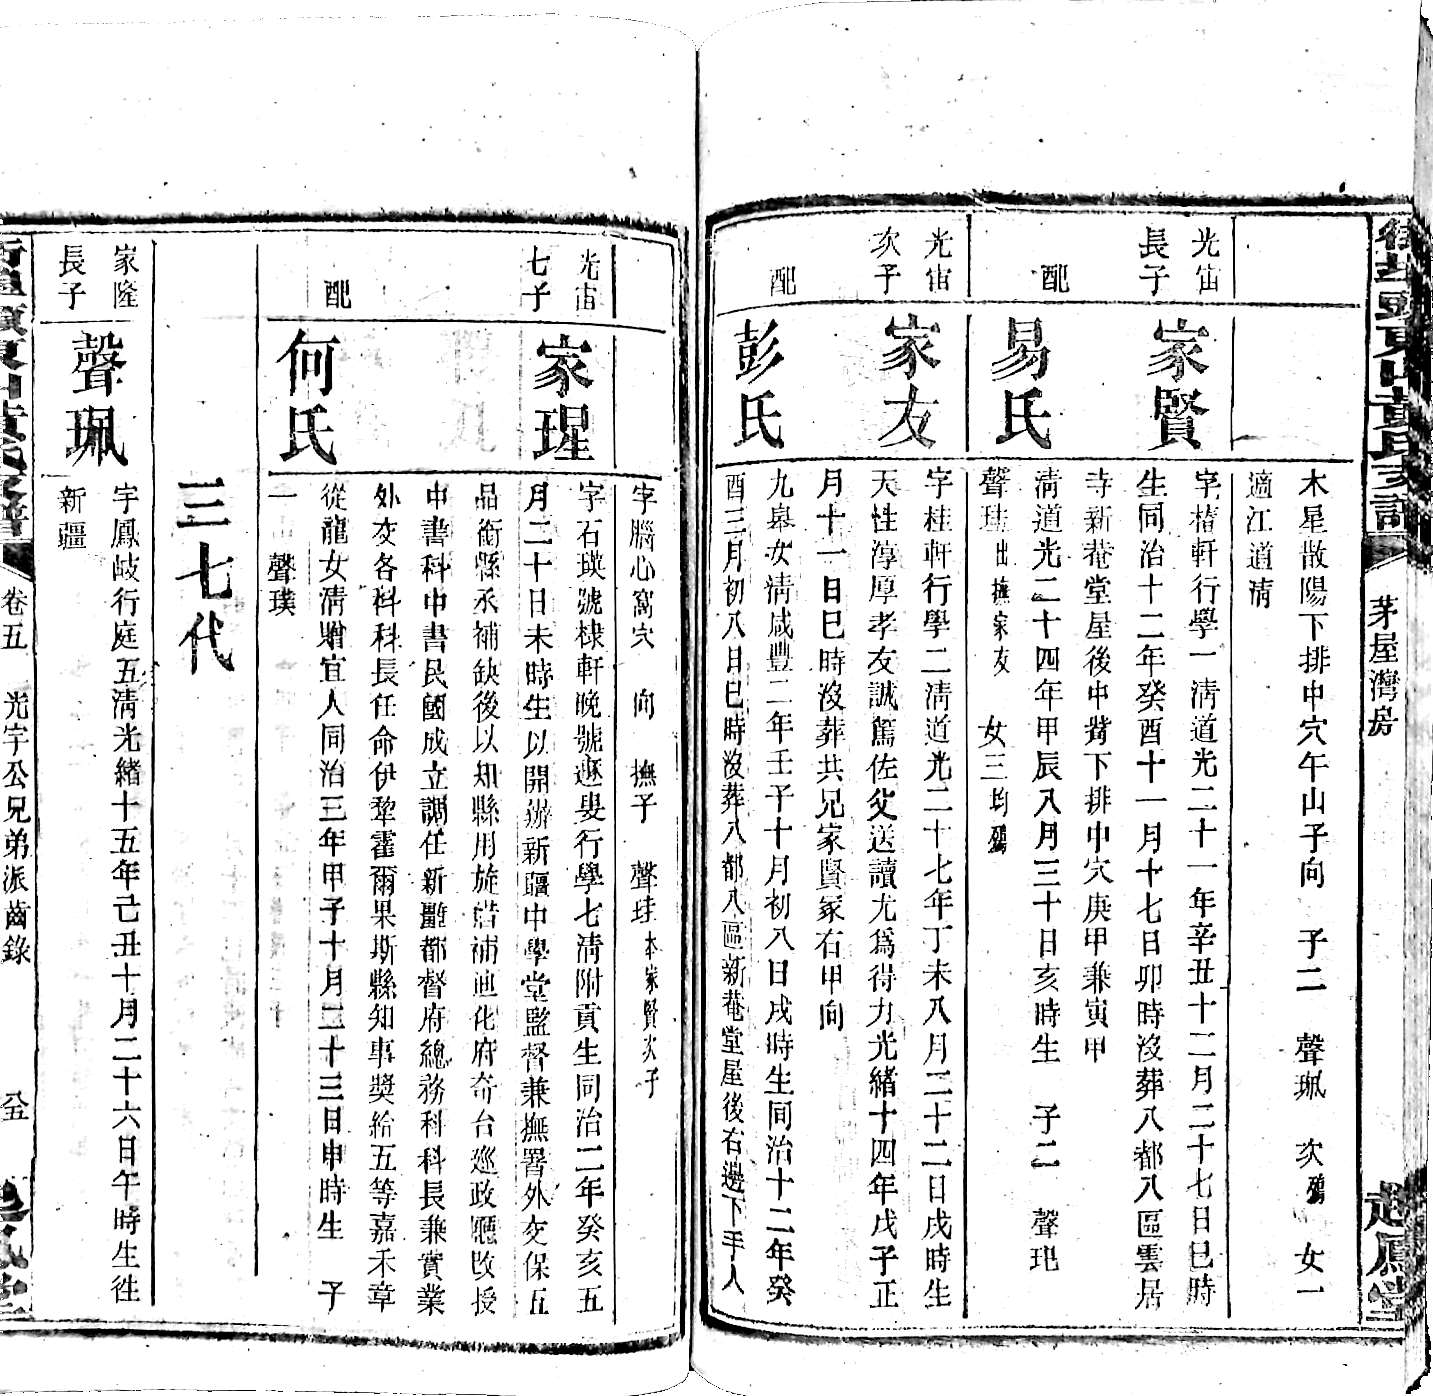 茅屋灣房
木星散陽下排中穴午山子向 子二 聲珮 次殤 女一
適江道清
光宙
長子
家賢
字樁軒行學一清道光二十一年辛丑十二月二十七日巳時
生同治十二年癸酉十一月十七日卯時沒葬八都八區雲居
寺新菴堂屋後中背下排中穴庚甲兼寅甲
配
易氏
清道光二十四年甲辰八月三十日亥時生 子二 聲玭
聲珪出撫家友 女三均殤
光宙
次子
家友
字桂軒行學二清道光二十七年丁未八月二十二日戌時生
天性淳厚孝友誠篤佐父送讀尤為得力光緒十四年戊子正
月十一日巳時沒葬共兄家賢冢右甲向
配
彭氏
九皋女清咸豐二年壬子十月初八日戌時生同治十二年癸
酉三月初八日巳時沒葬八都八區新菴堂屋後右邊下手人
字腦心窩穴 向 撫子 聲珪本家賢次子
光宙
七子
家瑆
字石瑛號棣軒晚號遯叟行學七清附貢生同治二年癸亥五
月二十日未時生以開辦新疆中學堂監督兼撫署外交保五
品銜縣丞補缺後以知縣用旋借補迪化府奇台巡政廳改授
中書科中書民國成立調任新疆都督府總務科科長兼實業
外交各科科長任命伊犂霍爾果斯縣知事奬給五等嘉禾章
配
何氏
從龍女清贈宜人同治三年甲子十月二十三日申時生 子
一 聲璞
三七代
家隆
長子
聲珮
字鳳岐行庭五清光緒十五年己丑十月二十六日午時生往
新疆
卷五 光宇公兄弟派齒錄 八五